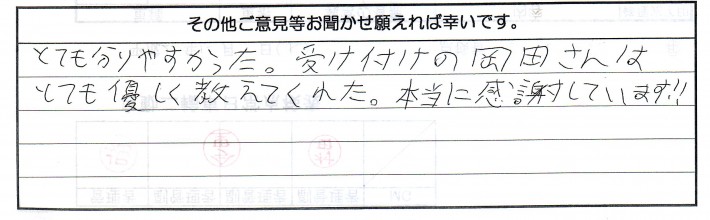 その他ご意見等お聞かせ願えれば幸いです。
とても分りやすかった。受け付けの岡田さんは
とても優しく教えてくれた。本当に感謝しています!!